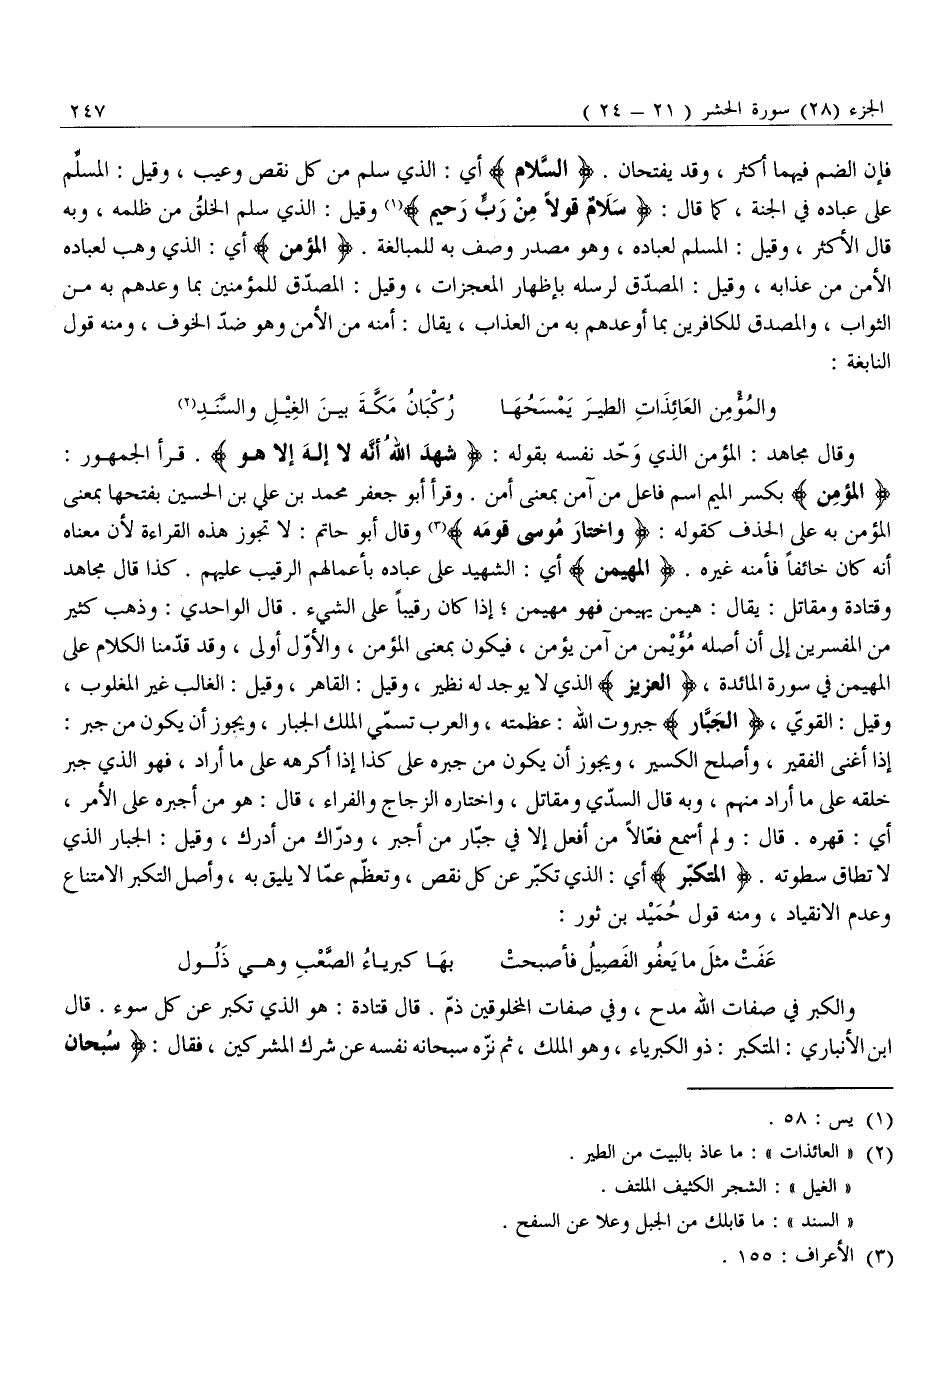 الجزء (٢٨) سورة الحشر ( ٢١ – ٢٤ ) ٢٤٧
فإن الضم فيهما أكثر ، وقد يفتحان . ﴿ السَّلام ﴾ أي : الذي سلم من كل نقص وعيب ، وقيل : المسلِّم
على عباده في الجنة ، كما قال : ﴿ سَلَامٌ قولاً مِنْ رَبٍّ رَحيم ﴾(١) وقيل : الذي سلم الخلقُ من ظلمه ، وبه
قال الأكثر ، وقيل : المسلم لعباده ، وهو مصدر وصف به للمبالغة . ﴿ المؤمن ﴾ أي : الذي وهب لعباده
الأمن من عذابه ، وقيل : المصدّق لرسله بإظهار المعجزات ، وقيل : المصدّق للمؤمنين بما وعدهم به من
الثواب ، والمصدق للكافرين بما أوعدهم به من العذاب ، يقال : أمنه من الأمن وهو ضدّ الخوف ، ومنه قول
النابغة :
والمُؤْمِن العَائِذَاتِ الطيرَ يَمْسَحُهَا رُكْبَانُ مَكَّةَ بينَ الغِيْلِ والسَّنَدِ(٢)
وقال مجاهد : المؤمن الذي وَحّد نفسه بقوله : ﴿ شهدَ اللهُ أنَّه لا إلهَ إلا هو ﴾ . قرأ الجمهور :
﴿ المؤمِن ﴾ بكسر الميم اسم فاعل من آمن بمعنى أمن . وقرأ أبو جعفر محمد بن علي بن الحسين بفتحها بمعنى
المؤمن به على الحذف كقوله : ﴿ واختارَ مُوسى قومَه ﴾(٣) وقال أبو حاتم : لا تجوز هذه القراءة لأن معناه
أنه كان خائفاً فأمنه غيره . ﴿ المهيمن ﴾ أي : الشهيد على عباده بأعمالهم الرقيب عليهم . كذا قال مجاهد
وقتادة ومقاتل : يقال : هيمن يهيمن فهو مهيمن ؛ إذا كان رقيباً على الشيء . قال الواحدي : وذهب كثير
من المفسرين إلى أن أصله مُؤَيْمن من آمن يؤمن ، فيكون بمعنى المؤمن ، والأوّل أولى ، وقد قدّمنا الكلام على
المهيمن في سورة المائدة ، ﴿ العزيز ﴾ الذي لا يوجد له نظير ، وقيل : القاهر ، وقيل : الغالب غير المغلوب ،
وقيل : القويّ ، ﴿ الجَبَّار ﴾ جبروت الله : عظمته ، والعرب تسمّي الملك الجبار ، ويجوز أن يكون من جبر :
إذا أغنى الفقير ، وأصلح الكسير ، ويجوز أن يكون من جبره على كذا إذا أكرهه على ما أراد ، فهو الذي جبر
خلقه على ما أراد منهم ، وبه قال السدّي ومقاتل ، واختاره الزجاج والفراء ، قال : هو من أجبره على الأمر ،
أي : قهره . قال : ولم أسمع فعّالاً من أفعل إلا في جبّار من أجبر ، ودرّاك من أدرك ، وقيل : الجبار الذي
لا تطاق سطوته . ﴿ المتكبّر ﴾ أي : الذي تكبّر عن كل نقص ، وتعظّم عمّا لا يليق به ، وأصل التكبر الامتناع
وعدم الانقياد ، ومنه قول حُمَيْد بن ثور :
عَفَتْ مثلَ ما يَعفُو الفَصِيلُ فأصبحتْ بهَا كبرياءُ الصَّعْبِ وهي ذَلُول
والكبر في صفات الله مدح ، وفي صفات المخلوقين ذمّ . قال قتادة : هو الذي تكبر عن كل سوء . قال
ابن الأنباري : المتكبر : ذو الكبرياء ، وهو الملك ، ثم نزّه سبحانه نفسه عن شرك المشركين ، فقال : ﴿ سُبحان
(١) يس : ٥٨ .
(٢) « العائذات » : ما عاذ بالبيت من الطير .
« الغيل » : الشجر الكثيف الملتف .
« السند » : ما قابلك من الجبل وعلا عن السفح .
(٣) الأعراف : ١٥٥ .